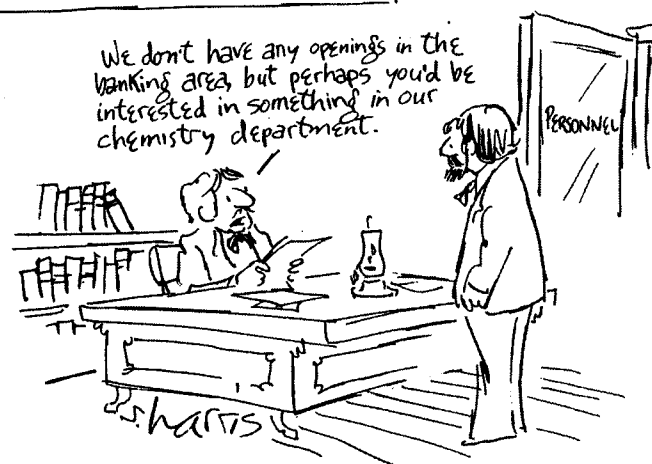 We don't have any openings in the
banking area, but perhaps you'd be
interested in something in our
chemistry department.
PERSONNEL
S.harris